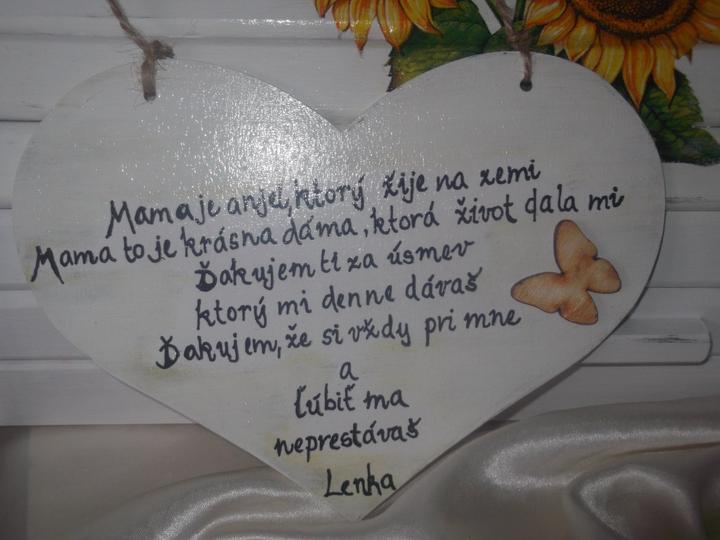 Mama je anjel, ktorý žije na zemi
Mama to je krásna dáma, ktorá život dala mi
Ďakujem ti za úsmev
ktorý mi denne dávaš
Ďakujem, že si vždy pri mne
a
ľúbiť ma
neprestávaš
Lenka